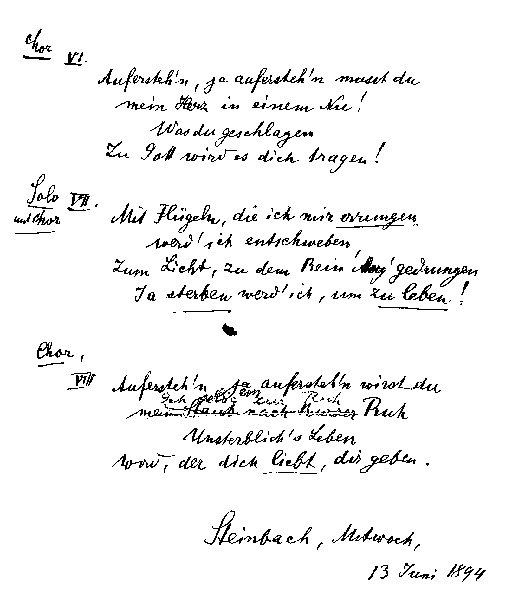 Chor VI.
Aufersteh'n, ja aufersteh'n musst du
mein Herz in einem Nu!
Was du geschlagen
Zu Gott wird es dich tragen!
Solo VII.
mit Chor
Mit Flügeln, die ich mir errungen
werd' ich entschweben
Zum Licht, zu dem kein gedrungen
Ja sterben werd' ich, um zu leben!
Chor,
VIII
Aufersteh'n ja aufersteh'n wirst du
mein Staub nach kurzer Ruh
Unsterblich's Leben
wird, der dich liebt, dir geben.
Steinbach, Mitwoch,
13 Juni 1894